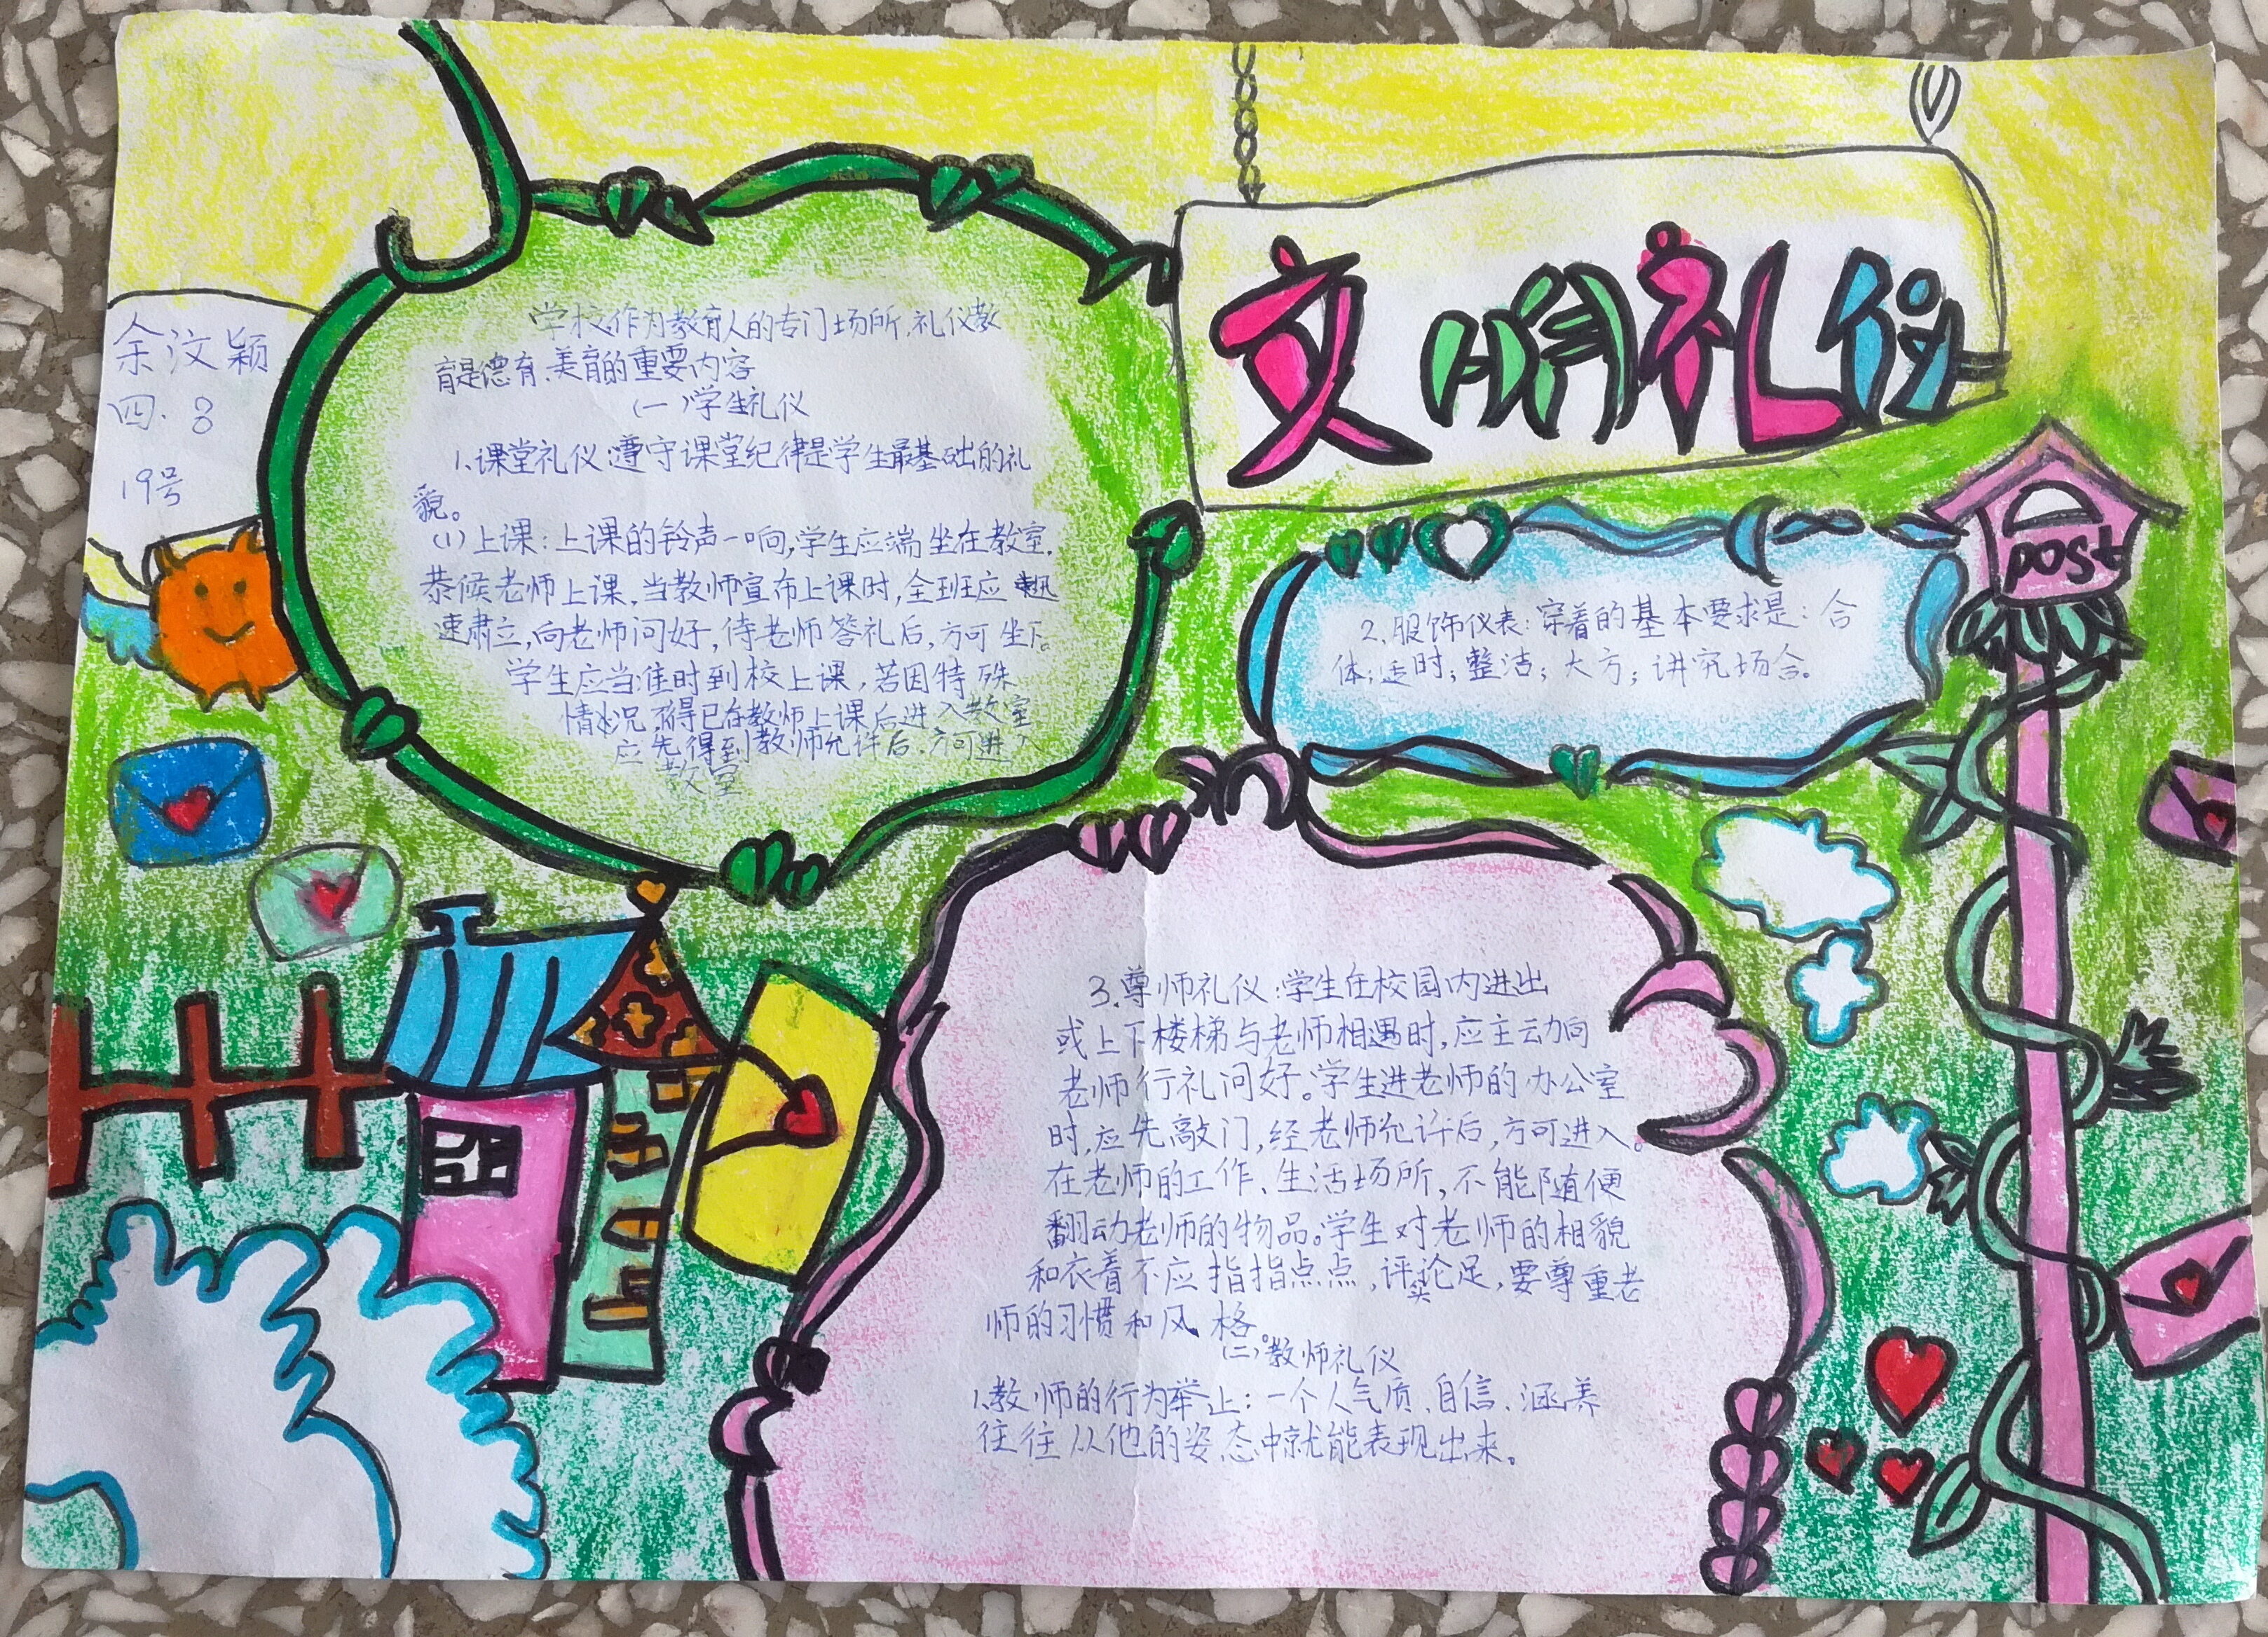 文明礼仪
余汶颖
四.8
19号
学校作为教育人的专门场所,礼仪教
育是德育、美育的重要内容
(一)学生礼仪
1、课堂礼仪:遵守课堂纪律是学生最基础的礼
貌。
(1)上课:上课的铃声一响,学生应端坐在教室,
恭候老师上课,当教师宣布上课时,全班应迅
速肃立,向老师问好,待老师答礼后,方可坐下。
学生应当准时到校上课,若因特殊
情况,不得已在教师上课后进入教室
应先得到教师允许后,方可进入
教室
post
2、服饰仪表:穿着的基本要求是:合
体;适时;整洁;大方;讲究场合。
3、尊师礼仪:学生在校园内进出
或上下楼梯与老师相遇时,应主动向
老师行礼问好。学生进老师的办公室
时,应先敲门,经老师允许后,方可进入。
在老师的工作、生活场所,不能随便
翻动老师的物品。学生对老师的相貌
和衣着不应指指点点,评论足,要尊重老
师的习惯和风格。
(二)教师礼仪
1、教师的行为举止:一个人气质、自信、涵养
往往从他的姿态中就能表现出来。